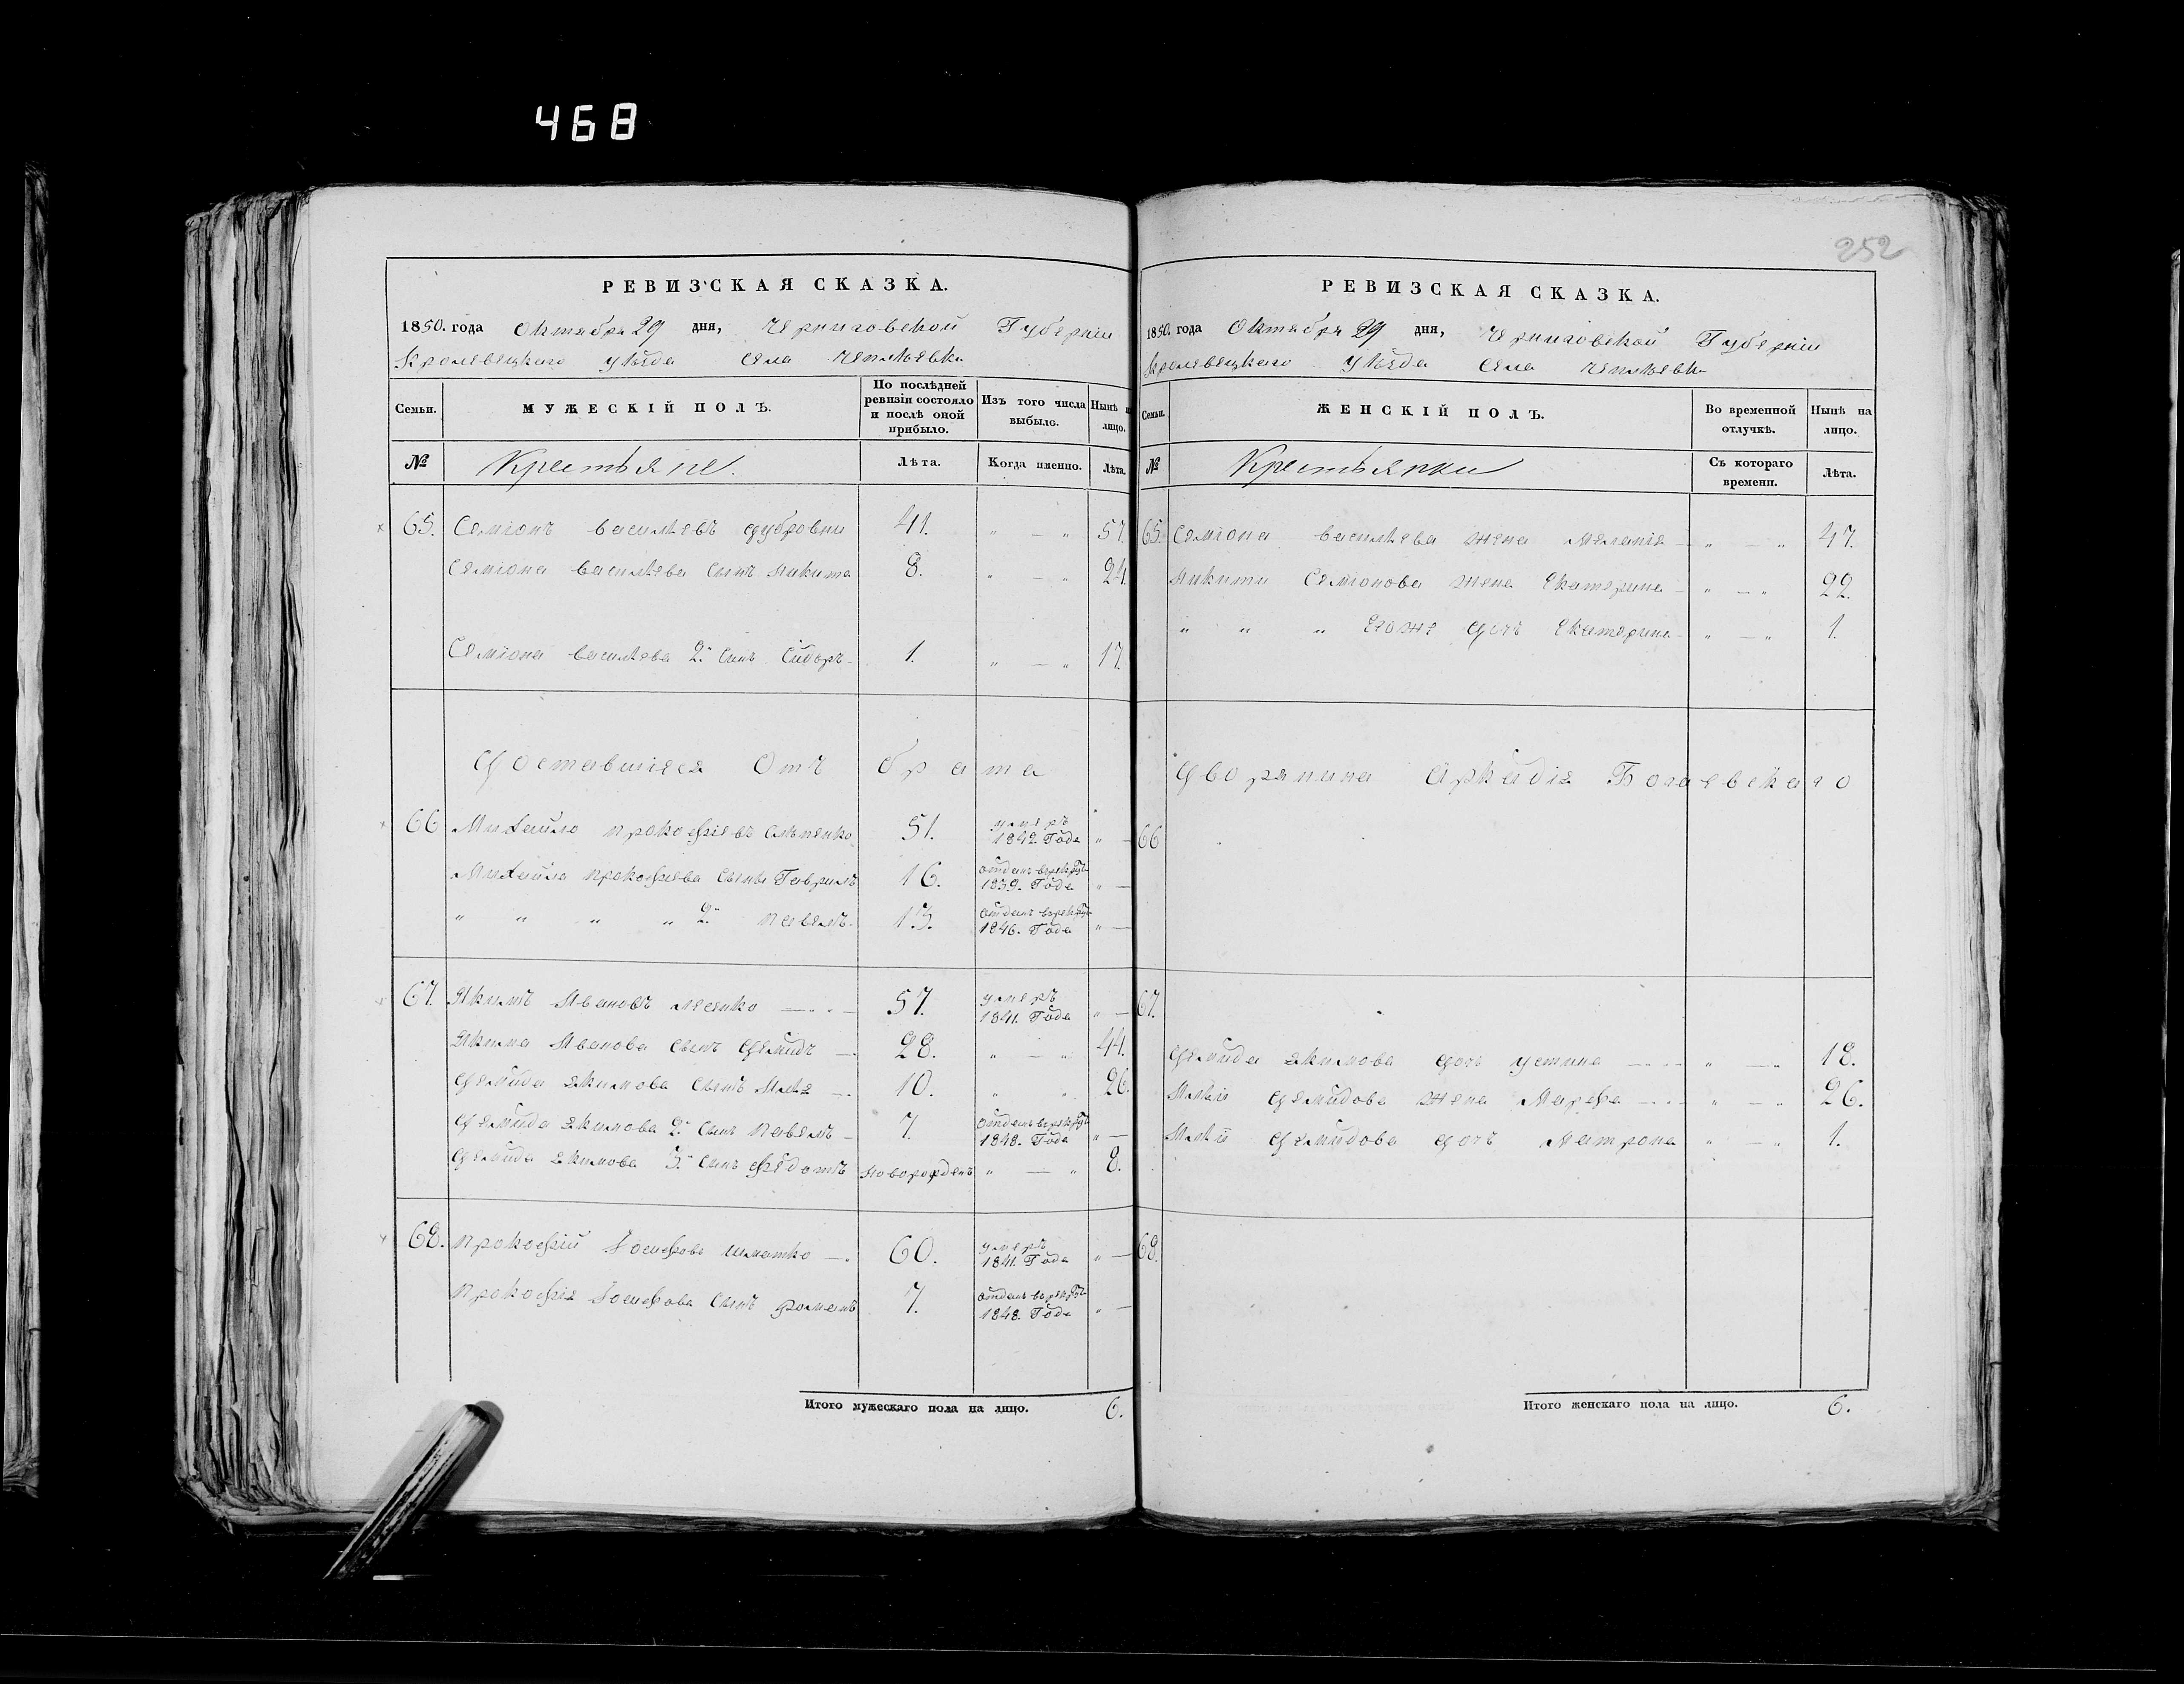 468
252
РЕВИЗСКАЯ СКАЗКА.
1850. года Октября 29 дня, Черниговской Губерніи
Кролевецкаго уѣзда Села
Семьи. МУЖЕСКІЙ ПОЛЪ. По послѣдней ревизіи состояло и послѣ оной прибыло. Изъ того числа выбыло. Нынѣ на лицо.
№ Крестьяне. Лѣта. Когда именно. Лѣта.
65. Семіонъ Васильевъ 41. " — " 57.
Семіона Васильева сынъ Никита 8. " — " 24.
Семіона Васильева 2й сынъ Сидоръ 1. " — " 17.
Доставшіеся Отъ брата
66 Михайло Прокофіевъ 51. умеръ 1842. Года " —
Михайла Прокофіева сынъ Гаврилъ 16. отданъ въ рекруты 1839. Года " —
" " " " 2й Павелъ 13. отданъ въ рекруты 1846. Года " —
67. Якимъ Ивановъ 57. умеръ 1841. Года " —
Якима Иванова сынъ Демидъ 28. " — " 44.
Демида Якимова сынъ Илья 10. " " 26.
Демида Якимова 2й сынъ Павелъ 7. отданъ въ рекруты 1848. Года " —
Демида Якимова 3й сынъ Федотъ новорожденъ " — " 8.
68. Прокофій Іосифовъ Шматко 60. умеръ 1841. Года " —
Прокофія Іосифова сынъ Романъ 7. отданъ въ рекруты 1848. Года " —
Итого мужескаго пола на лицо. 6.
РЕВИЗСКАЯ СКАЗКА.
1850. года Октября 29 дня, Черниговской Губерніи
Кролевецкаго уѣзда Села
Семьи. ЖЕНСКІЙ ПОЛЪ. Во временной отлучкѣ. Нынѣ на лицо.
№ Крестьянки Съ котораго времени. Лѣта.
65. Семіона Васильева жена Меланія " — " 47.
Никиты Семіонова жена Екатерина " — " 22.
" " " Егоже дочь Екатерина " — " 1.
Дворянина Аркадія Богаевскаго
66
67.
Демида Якимова дочь Устина " — " 18.
Ильи Демидова жена Марфа " — " 26.
Ильи Демидова дочь Матрона " — " 1.
68.
Итого женскаго пола на лицо. 6.